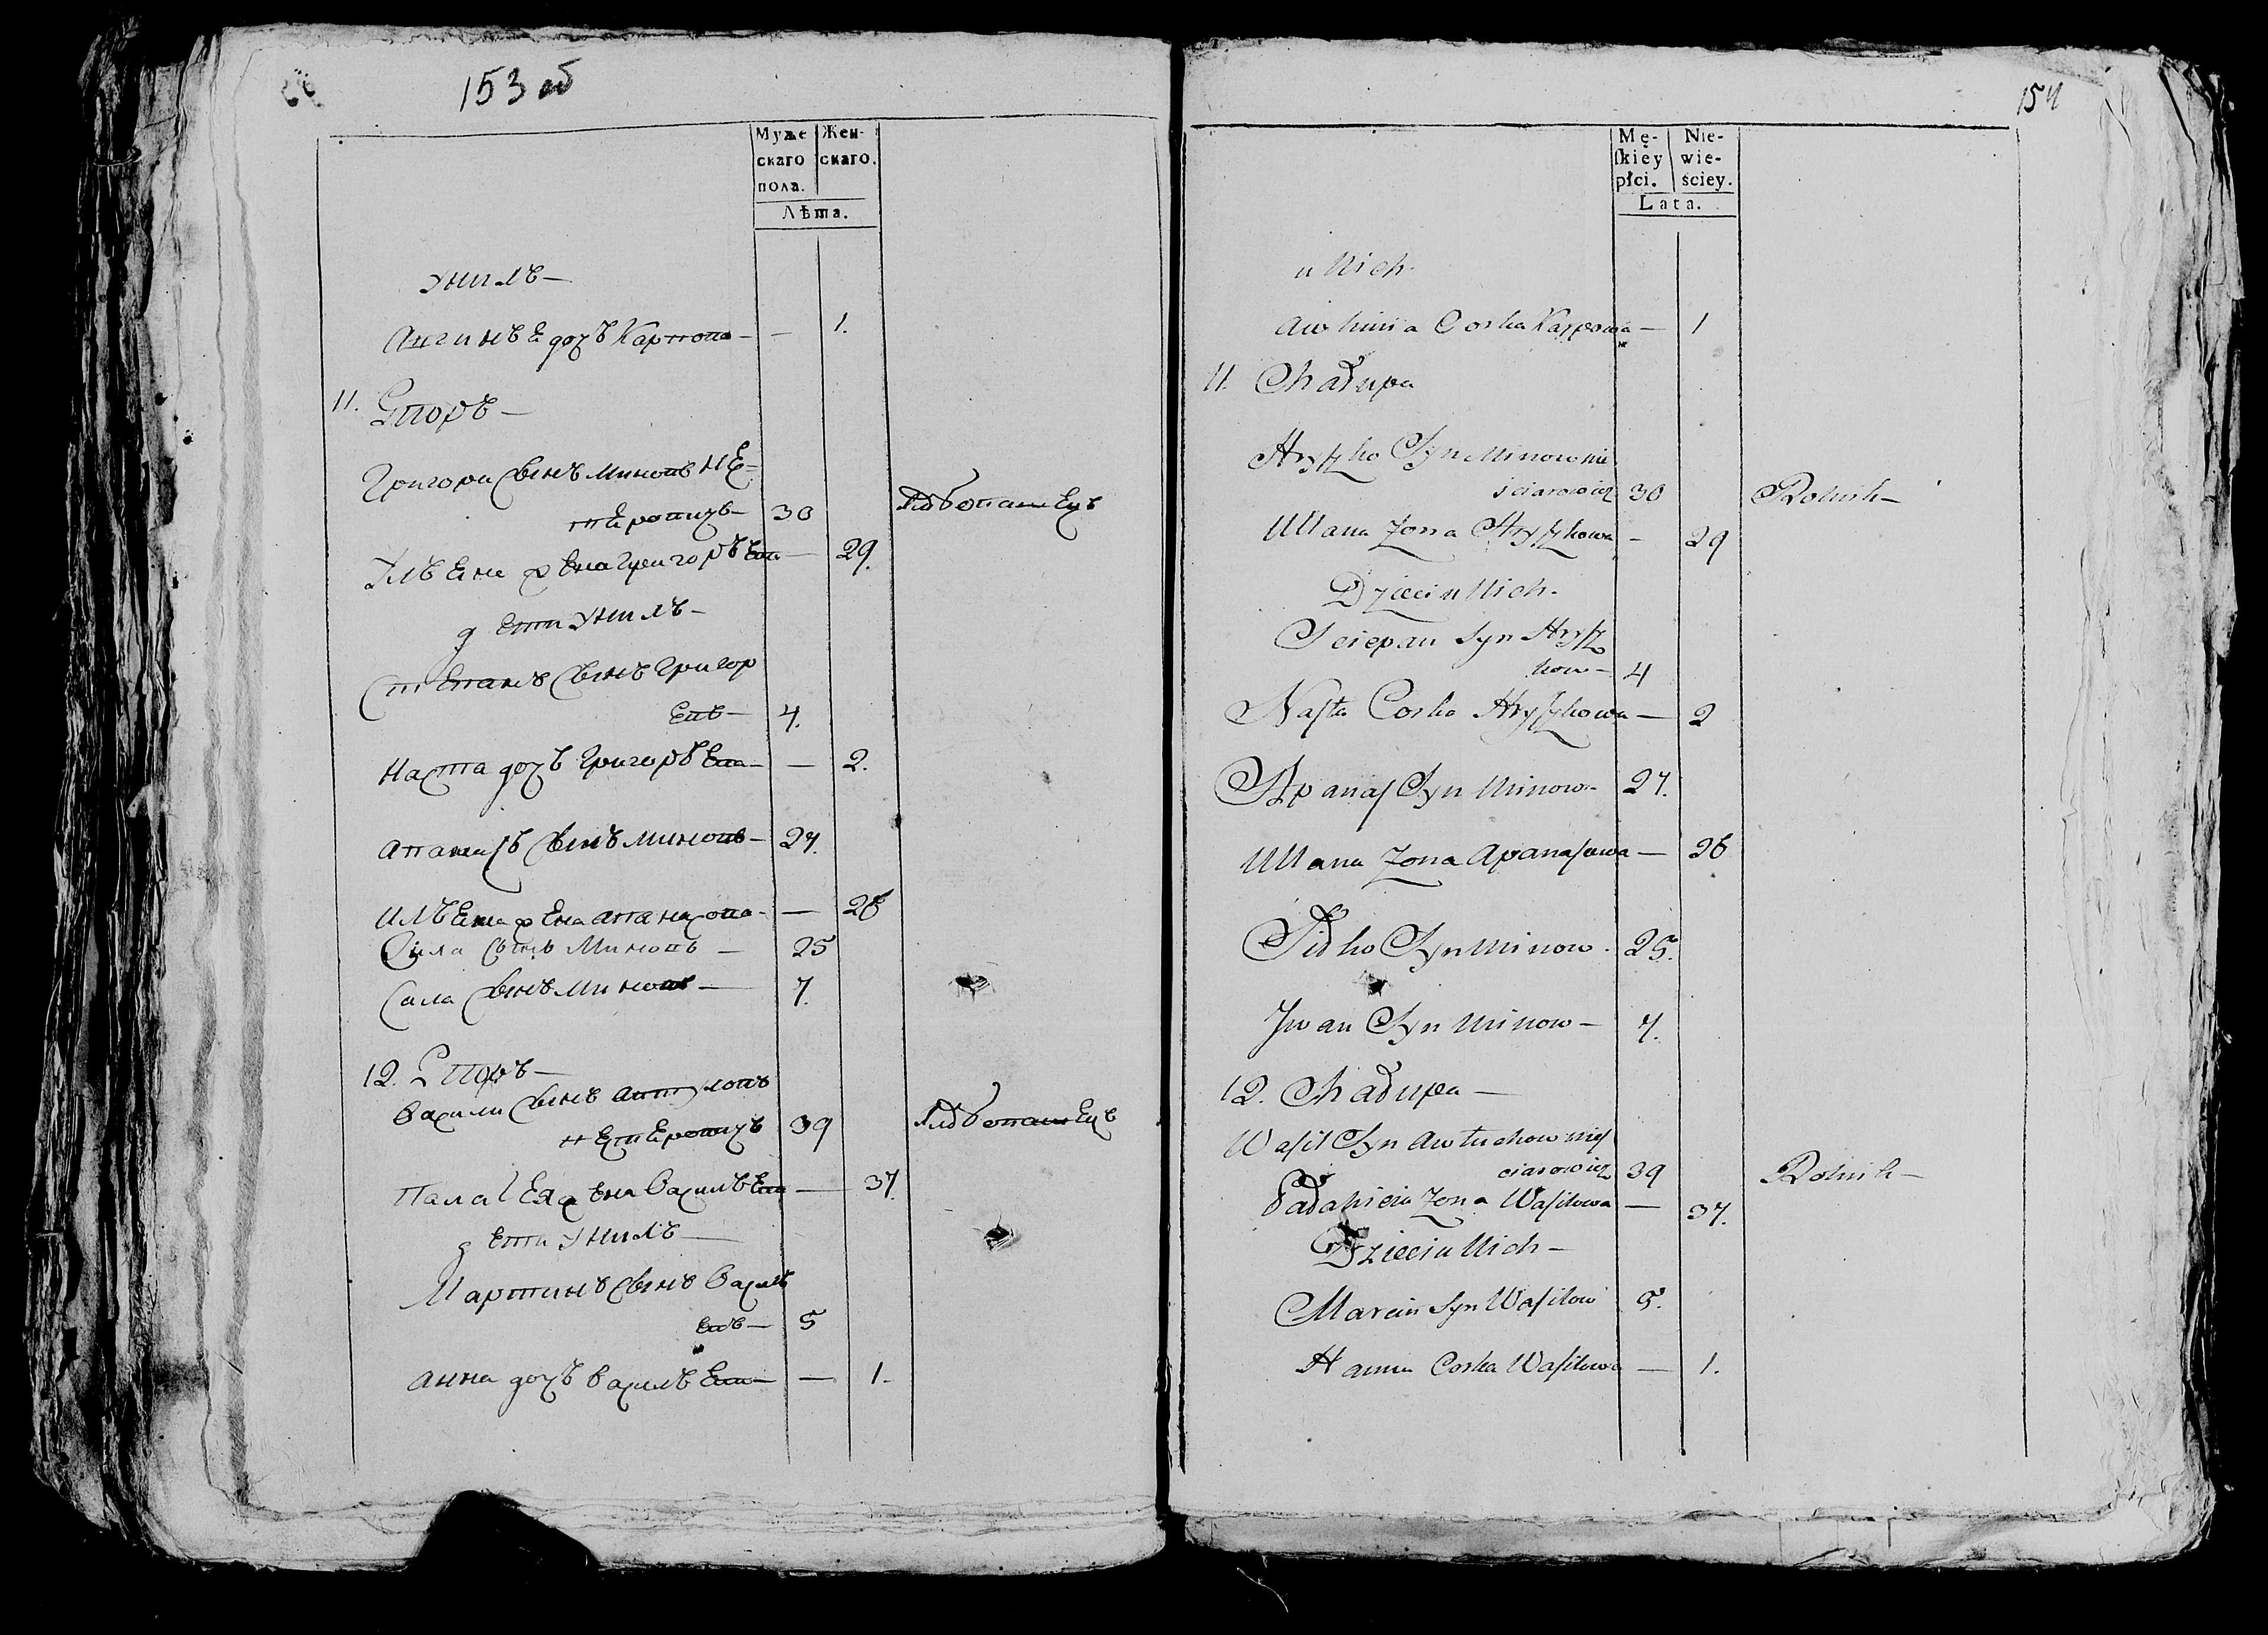 153 об
Муже
скаго
пола.
Жен-
скаго.
Лѣта.
унихъ —
Авгинья дочъ Карпова — — 1.
11. Дворъ —
Григори Сынъ Миновъ Не=
стеровичъ — 30
Ульяна жена Григорьева — 29.
дети унихъ —
Степанъ Сынъ Григор
евъ — 4.
Наста дочъ Григорьева — — 2.
Апанасъ Сынъ Миновъ — 27.
Ульяна жена Апанасова — — 26
Сила Сынъ Миновъ — 25
Сынъ Миновъ — 7.
12. Дворъ —
Васили Сынъ Автуховъ
Нестеровичъ 39
Палагея жена Васильева — 37.
дети унихъ —
Мартинъ Сынъ Василь
евъ — 5
Анна дочъ Васильева — — 1.
154
Mę-
ſkiey
płci.
Nie-
wie-
ściey.
Lata.
u Nich
Awhinia Corka Karpowa — 1
11. Chałupa
Hryszko Syn Minow Nie
sciarowicz 30 Rolnik —
Ullana Zona Hryszkowa — 29
Dzieci u Nich —
Sciepan Syn Hrysz
kow — 4
Nasta Corka Hryszkowa — 2
Apanas Syn Minow — 27.
Ullana Zona Apanasowa — 26
Sidko Syn Minow — 25.
Jwan Syn Minow — 7.
12. Chałupa —
Wasil Syn Awtuchow Nies
ciarowicz 39 Rolnik —
Pałahieia Zona Wasilowa — 37.
Dzieci u Nich —
Marcin Syn Wasilow 5.
Hanna Corka Wasilowa — 1.